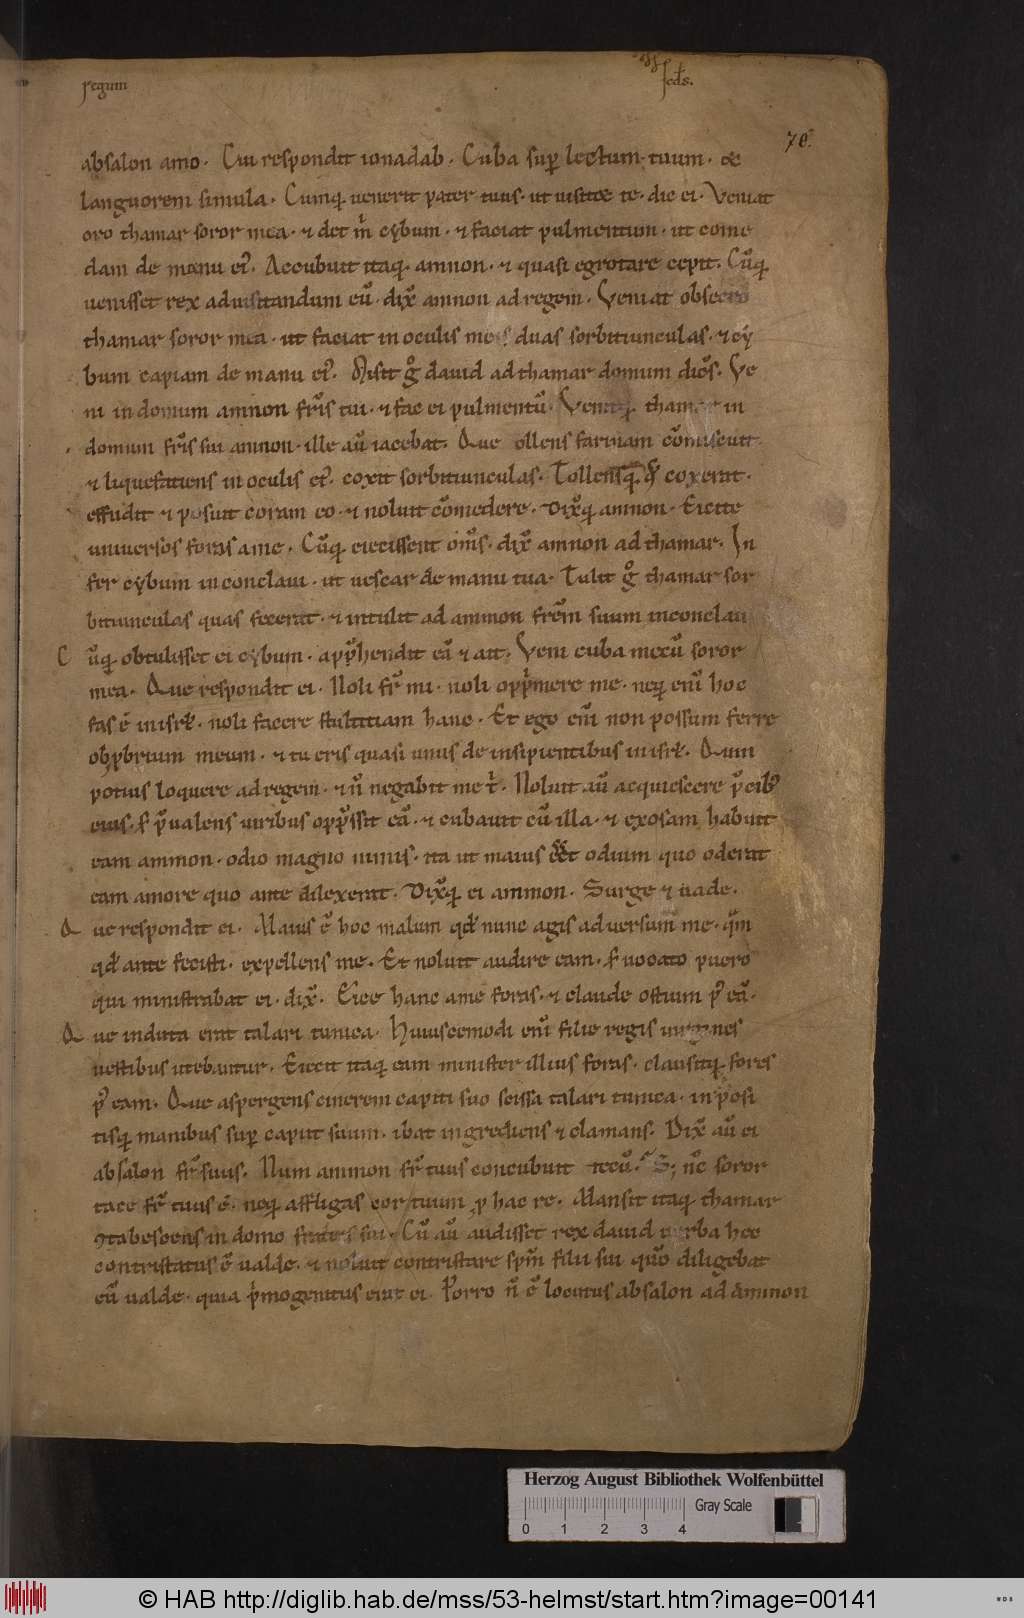 regum
scds.
70.
absalon amo. Cui respondit ionadab. Cuba sup̄ lectum tuum. &
languorem simula. Cumq; uenerit pater tuus. ut uisitet te. dic ei. Veniat
oro thamar soror mea. & det m̄ cybum. & faciat pulmentum. ut come
dam de manu ei᷒. Accubuit itaq; amnon. & quasi egrotare cepit. Cūq;
uenisset rex ad uisitandum eū. dix̄ amnon ad regem. Veniat obsecro
thamar soror mea. ut faciat in oculis meis duas sorbitiunculas. & cy
bum capiam de manu ei᷒. Misit g° dauid ad thamar domum dicēs. Ve
ni in domum amnon fr̄is tui. & fac ei pulmentū. Venitq; thamar in
domum fr̄is sui amnon. ille aū iacebat. Que tollens farinam cōmiscuit
& liquefatiens in oculis ei᷒. coxit sorbitiunculas. Tollensq; qd̄ coxerat.
effudit & posuit coram eo. & noluit cōmedere. Dix̄q; amnon. Eicite
uniuersos foras a me. Cūq; eiecissent om̄s. dix̄ amnon ad thamar. In
fer cybum in conclaui. ut uescar de manu tua. Tulit g° thamar sor
bitiunculas quas fecerat. & intulit ad amnon frēm suum in conclaui
Cūq; obtulisset ei cybum. app̄hendit eā & ait. Veni cuba mecū soror
mea. Que respondit ei. Noli fr̄ mi. noli opp̄mere me. neq; eni̅ hoc
fas ē in isrł. noli facere stultitiam hanc. Et ego eni̅ non possum ferre
obp̄brium meum. & tu eris quasi unus de insipientibus in isrł. Quin
potius loquere ad regem. & n̄ negabit me t̄. Noluit aū acquiescere p̄cib᷒
eius. s; p̄ualens uiribus opp̄ssit eā. & cubauit cū illa. & exosam habuit
eam ammon. odio magno nimis. ita ut maius e͞et odium quo oderat
eam amore quo ante dilexerat. Dix̄q; ei ammon. Surge & uade.
Que respondit ei. Maius ē hoc malum qd̄ nunc agis aduersum me. qm̄
qd̄ ante fecisti. expellens me. Et noluit audire eam. s; uocato puero
qui ministrabat ei. dix̄. Eice hanc a me foras. & claude ostium p᷒ eā.
Que induta erat talari tunica. Huiuscemodi eni̅ filie regis uirgines
uestibus utebantur. Eiecit itaq; eam minister illius foras. clausitq; fores
p᷒ eam. Que aspergens cinerem capiti suo scissa talari tunica. inposi
tisq; manibus sup̄ caput suum. ibat ingrediens & clamans. Dix̄ aū ei
absalon fr̄ suus. Num ammon fr̄ tuus concubuit tecū. S; nc̄ soror
tace fr̄ tuus ē. neq; affligas cor tuum p̱ hac re. Mansit itaq; thamar
ꝯtabescens in domo fratris sui. Cū aū audisset rex dauid uerba hec
contristatus ē ualde. & noluit contristare spm̄ filii sui quō diligebat
eū ualde. quia p̄mogenitus erat ei. Porro n̄ ē locutus absalon ad amnon
Herzog August Bibliothek Wolfenbüttel
Gray Scale
0 1 2 3 4
© HAB http://diglib.hab.de/mss/53-helmst/start.htm?image=00141